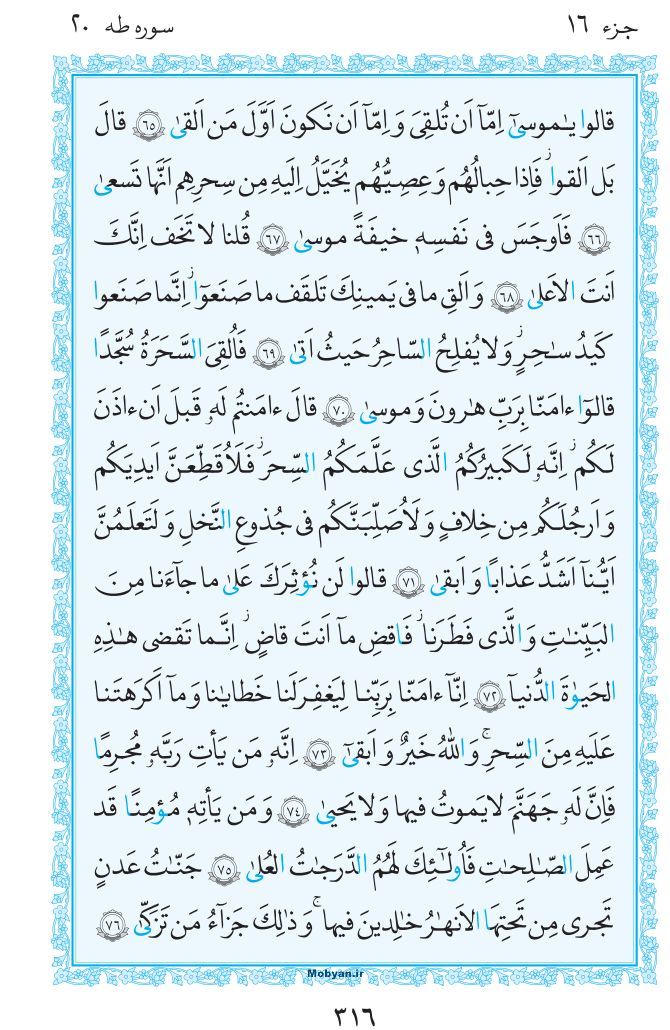 جزء ١٦
سوره طه ٢٠
قالوا يٰموسىٰٓ اِمّآ اَن تُلقِىَ وَ اِمّآ اَن نَكونَ اَوَّلَ مَن اَلقىٰ ﴿٦٥﴾ قالَ
بَل اَلقوا ۖ فَاِذا حِبالُهُم وَ عِصِيُّهُم يُخَيَّلُ اِلَيهِ مِن سِحرِهِم اَنَّها تَسعىٰ
﴿٦٦﴾ فَاَوجَسَ فى نَفسِهٖ خيفَةً موسىٰ ﴿٦٧﴾ قُلنا لا تَخَف اِنَّكَ
اَنتَ الاَعلىٰ ﴿٦٨﴾ وَ اَلقِ ما فى يَمينِكَ تَلقَف ما صَنَعوٓا ۖ اِنَّما صَنَعوا
كَيدُ سٰحِرٍ ۖ وَ لا يُفلِحُ السّاحِرُ حَيثُ اَتىٰ ﴿٦٩﴾ فَاُلقِىَ السَّحَرَةُ سُجَّدًا
قالوٓا ءامَنّا بِرَبِّ هٰرونَ وَ موسىٰ ﴿٧٠﴾ قالَ ءامَنتُم لَهٗ قَبلَ اَن ءاذَنَ
لَكُم ۖ اِنَّهٗ لَكَبيرُكُمُ الَّذى عَلَّمَكُمُ السِّحرَ ۖ فَلَاُقَطِّعَنَّ اَيدِيَكُم
وَ اَرجُلَكُم مِن خِلافٍ وَ لَاُصَلِّبَنَّكُم فى جُذوعِ النَّخلِ وَ لَتَعلَمُنَّ
اَيُّنآ اَشَدُّ عَذابًا وَ اَبقىٰ ﴿٧١﴾ قالوا لَن نُؤثِرَكَ عَلىٰ ما جآءَنا مِنَ
البَيِّنٰتِ وَ الَّذى فَطَرَنا ۖ فَاقضِ مآ اَنتَ قاضٍ ۖ اِنَّما تَقضى هٰذِهِ
الحَيوٰةَ الدُّنيآ ﴿٧٢﴾ اِنّآ ءامَنّا بِرَبِّنا لِيَغفِرَ لَنا خَطايٰنا وَ مآ اَكرَهتَنا
عَلَيهِ مِنَ السِّحرِ ۚ وَ اللهُ خَيرٌ وَ اَبقىٰٓ ﴿٧٣﴾ اِنَّهٗ مَن يَأتِ رَبَّهٗ مُجرِمًا
فَاِنَّ لَهٗ جَهَنَّمَ لا يَموتُ فيها وَ لا يَحيىٰ ﴿٧٤﴾ وَ مَن يَأتِهٖ مُؤمِنًا قَد
عَمِلَ الصّٰلِحٰتِ فَاُولٰٓئِكَ لَهُمُ الدَّرَجٰتُ العُلىٰ ﴿٧٥﴾ جَنّٰتُ عَدنٍ
تَجرى مِن تَحتِهَا الاَنهٰرُ خٰلِدينَ فيها ۚ وَ ذٰلِكَ جَزآءُ مَن تَزَكّىٰ ﴿٧٦﴾
Mobyan.ir
٣١٦